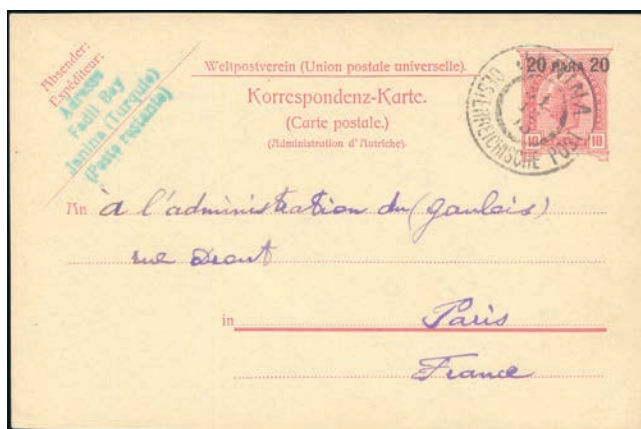 Absender:
Expéditeur:
Adresse
Fadil Bey
Janina (Turquie)
(Poste restante)
Weltpostverein (Union postale universelle).
Korrespondenz-Karte.
(Carte postale.)
(Administration d'Autriche).
20 PARA 20
10 10
OESTERREICHISCHE POST
An à l'administration du (gaulois)
rue Drout
in Paris
France